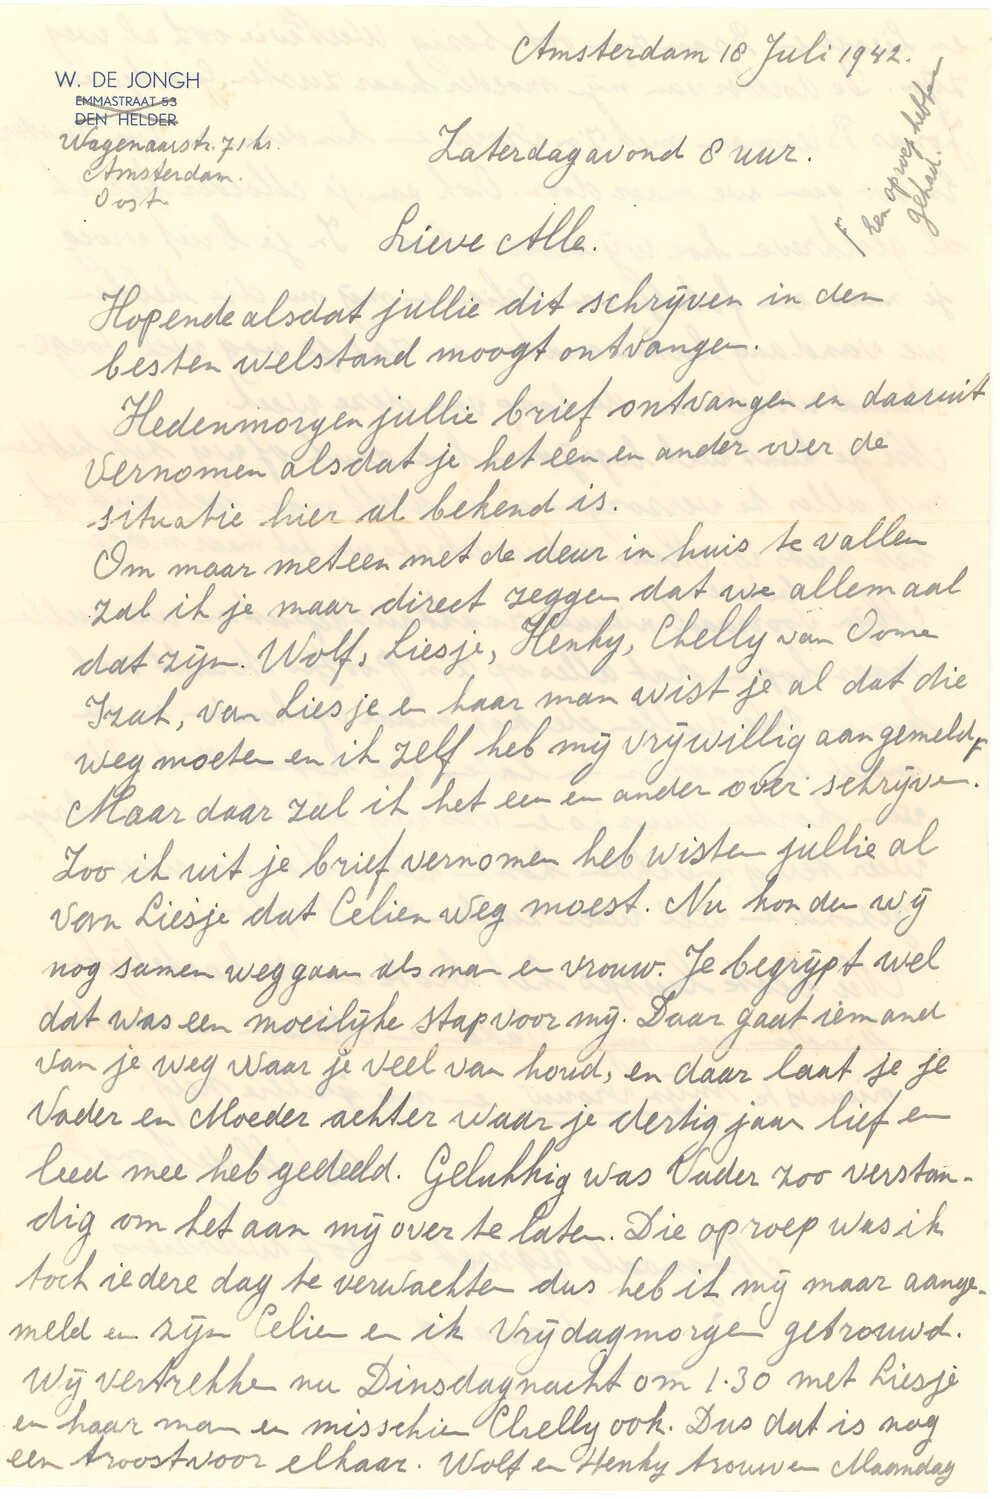 Amsterdam 18 Juli 1942.
W. DE JONGH
EMMASTRAAT 53
DEN HELDER
Wagenaarstr. 71hs.
Amsterdam.
Oost.
Zaterdagavond 8 uur.
F een oproep hebben
gehad.
Lieve Alle.
Hopende alsdat jullie dit schrijven in den
besten welstand moogt ontvangen.
Hedenmorgen jullie brief ontvangen en daaruit
vernomen alsdat je het een en ander over de
situatie hier al bekend is.
Om maar meteen met de deur in huis te vallen
zal ik je maar direct zeggen dat we allemaal
dat zijn. Wolf, Liesje, Henky, Chelly van Oome
Izak, van Liesje en haar man wist je al dat die
weg moeten en ik zelf heb mij vrijwillig aangemeld F
Maar daar zal ik het een en ander over schrijven.
Zoo ik uit je brief vernomen heb wisten jullie al
van Liesje dat Celien weg moest. Nu konden wij
nog samen weggaan als man en vrouw. Je begrijpt wel
dat was een moeilijke stap voor mij. Daar gaat iemand
van je weg waar je veel van houd, en daar laat je je
Vader en Moeder achter waar je dertig jaar lief en
leed mee heb gedeeld. Gelukkig was Vader zoo verstan-
dig om het aan mij over te laten. Die oproep was ik
toch iedere dag te verwachten dus heb ik mij maar aange-
meld en zijn Celien en ik Vrijdagmorgen getrouwd.
Wij vertrekken nu Dinsdagnacht om 1.30 met Liesje
en haar man en misschien Chelly ook. Dus dat is nog
een troost voor elkaar. Wolf en Henky trouwen Maandag